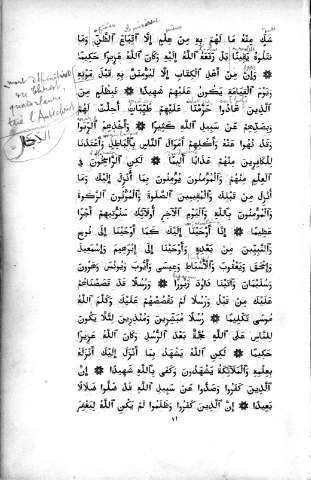 شَكٍّ مِنْهُ مَا لَهُمْ بِهِ مِنْ عِلْمٍ إِلَّا ٱتِّبَاعَ ٱلظَّنِّ وَمَا
قَتَلُوهُ يَقِينًا بَلْ رَفَعَهُ ٱللَّهُ إِلَيْهِ وَكَانَ ٱللَّهُ عَزِيزًا حَكِيمًا
۞ وَإِنْ مِنْ أَهْلِ ٱلْكِتَابِ إِلَّا لَيُؤْمِنَنَّ بِهِ قَبْلَ مَوْتِهِ
وَيَوْمَ ٱلْقِيَامَةِ يَكُونُ عَلَيْهِمْ شَهِيدًا ۞ فَبِظُلْمٍ مِنَ
ٱلَّذِينَ هَادُوا حَرَّمْنَا عَلَيْهِمْ طَيِّبَاتٍ أُحِلَّتْ لَهُمْ
وَبِصَدِّهِمْ عَنْ سَبِيلِ ٱللَّهِ كَثِيرًا ۞ وَأَخْذِهِمُ ٱلرِّبَوا
وَقَدْ نُهُوا عَنْهُ وَأَكْلِهِمْ أَمْوَالَ ٱلنَّاسِ بِٱلْبَاطِلِ وَأَعْتَدْنَا
لِلْكَافِرِينَ مِنْهُمْ عَذَابًا أَلِيمًا ۞ لَكِنِ ٱلرَّاسِخُونَ فِي
ٱلْعِلْمِ مِنْهُمْ وَٱلْمُؤْمِنُونَ يُؤْمِنُونَ بِمَا أُنْزِلَ إِلَيْكَ وَمَا
أُنْزِلَ مِنْ قَبْلِكَ وَٱلْمُقِيمِينَ ٱلصَّلَوةَ وَٱلْمُؤْتُونَ ٱلزَّكَوةَ
وَٱلْمُؤْمِنُونَ بِٱللَّهِ وَٱلْيَوْمِ ٱلْآخِرِ أُولَائِكَ سَنُؤْتِيهِمْ أَجْرًا
عَظِيمًا ۞ إِنَّا أَوْحَيْنَا إِلَيْكَ كَمَا أَوْحَيْنَا إِلَى نُوحٍ
وَٱلنَّبِيِّينَ مِنْ بَعْدِهِ وَأَوْحَيْنَا إِلَى إِبْرَهِيمَ وَإِسْمَعِيلَ
وَإِسْحَقَ وَيَعْقُوبَ وَٱلْأَسْبَاطِ وَعِيسَى وَأَيُّوبَ وَيُونُسَ وَهَرُونَ
وَسُلَيْمَانَ وَآتَيْنَا دَاوُدَ زَبُورًا ۞ وَرُسُلًا قَدْ قَصَصْنَاهُمْ
عَلَيْكَ مِنْ قَبْلُ وَرُسُلًا لَمْ نَقْصُصْهُمْ عَلَيْكَ وَكَلَّمَ ٱللَّهُ
مُوسَى تَكْلِيمًا ۞ رُسُلًا مُبَشِّرِينَ وَمُنْذِرِينَ لِئَلَّا يَكُونَ
لِلنَّاسِ عَلَى ٱللَّهِ حُجَّةٌ بَعْدَ ٱلرُّسُلِ وَكَانَ ٱللَّهُ عَزِيزًا
حَكِيمًا ۞ لَكِنِ ٱللَّهُ يَشْهَدُ بِمَا أَنْزَلَ إِلَيْكَ أَنْزَلَهُ
بِعِلْمِهِ وَٱلْمَلَائِكَةُ يَشْهَدُونَ وَكَفَى بِٱللَّهِ شَهِيدًا ۞ إِنَّ
ٱلَّذِينَ كَفَرُوا وَصَدُّوا عَنْ سَبِيلِ ٱللَّهِ قَدْ ضَلُّوا ضَلَالًا
بَعِيدًا ۞ إِنَّ ٱلَّذِينَ كَفَرُوا وَظَلَمُوا لَمْ يَكُنِ ٱللَّهُ لِيَغْفِرَ
٧١
l'Antéchrist
الدجال